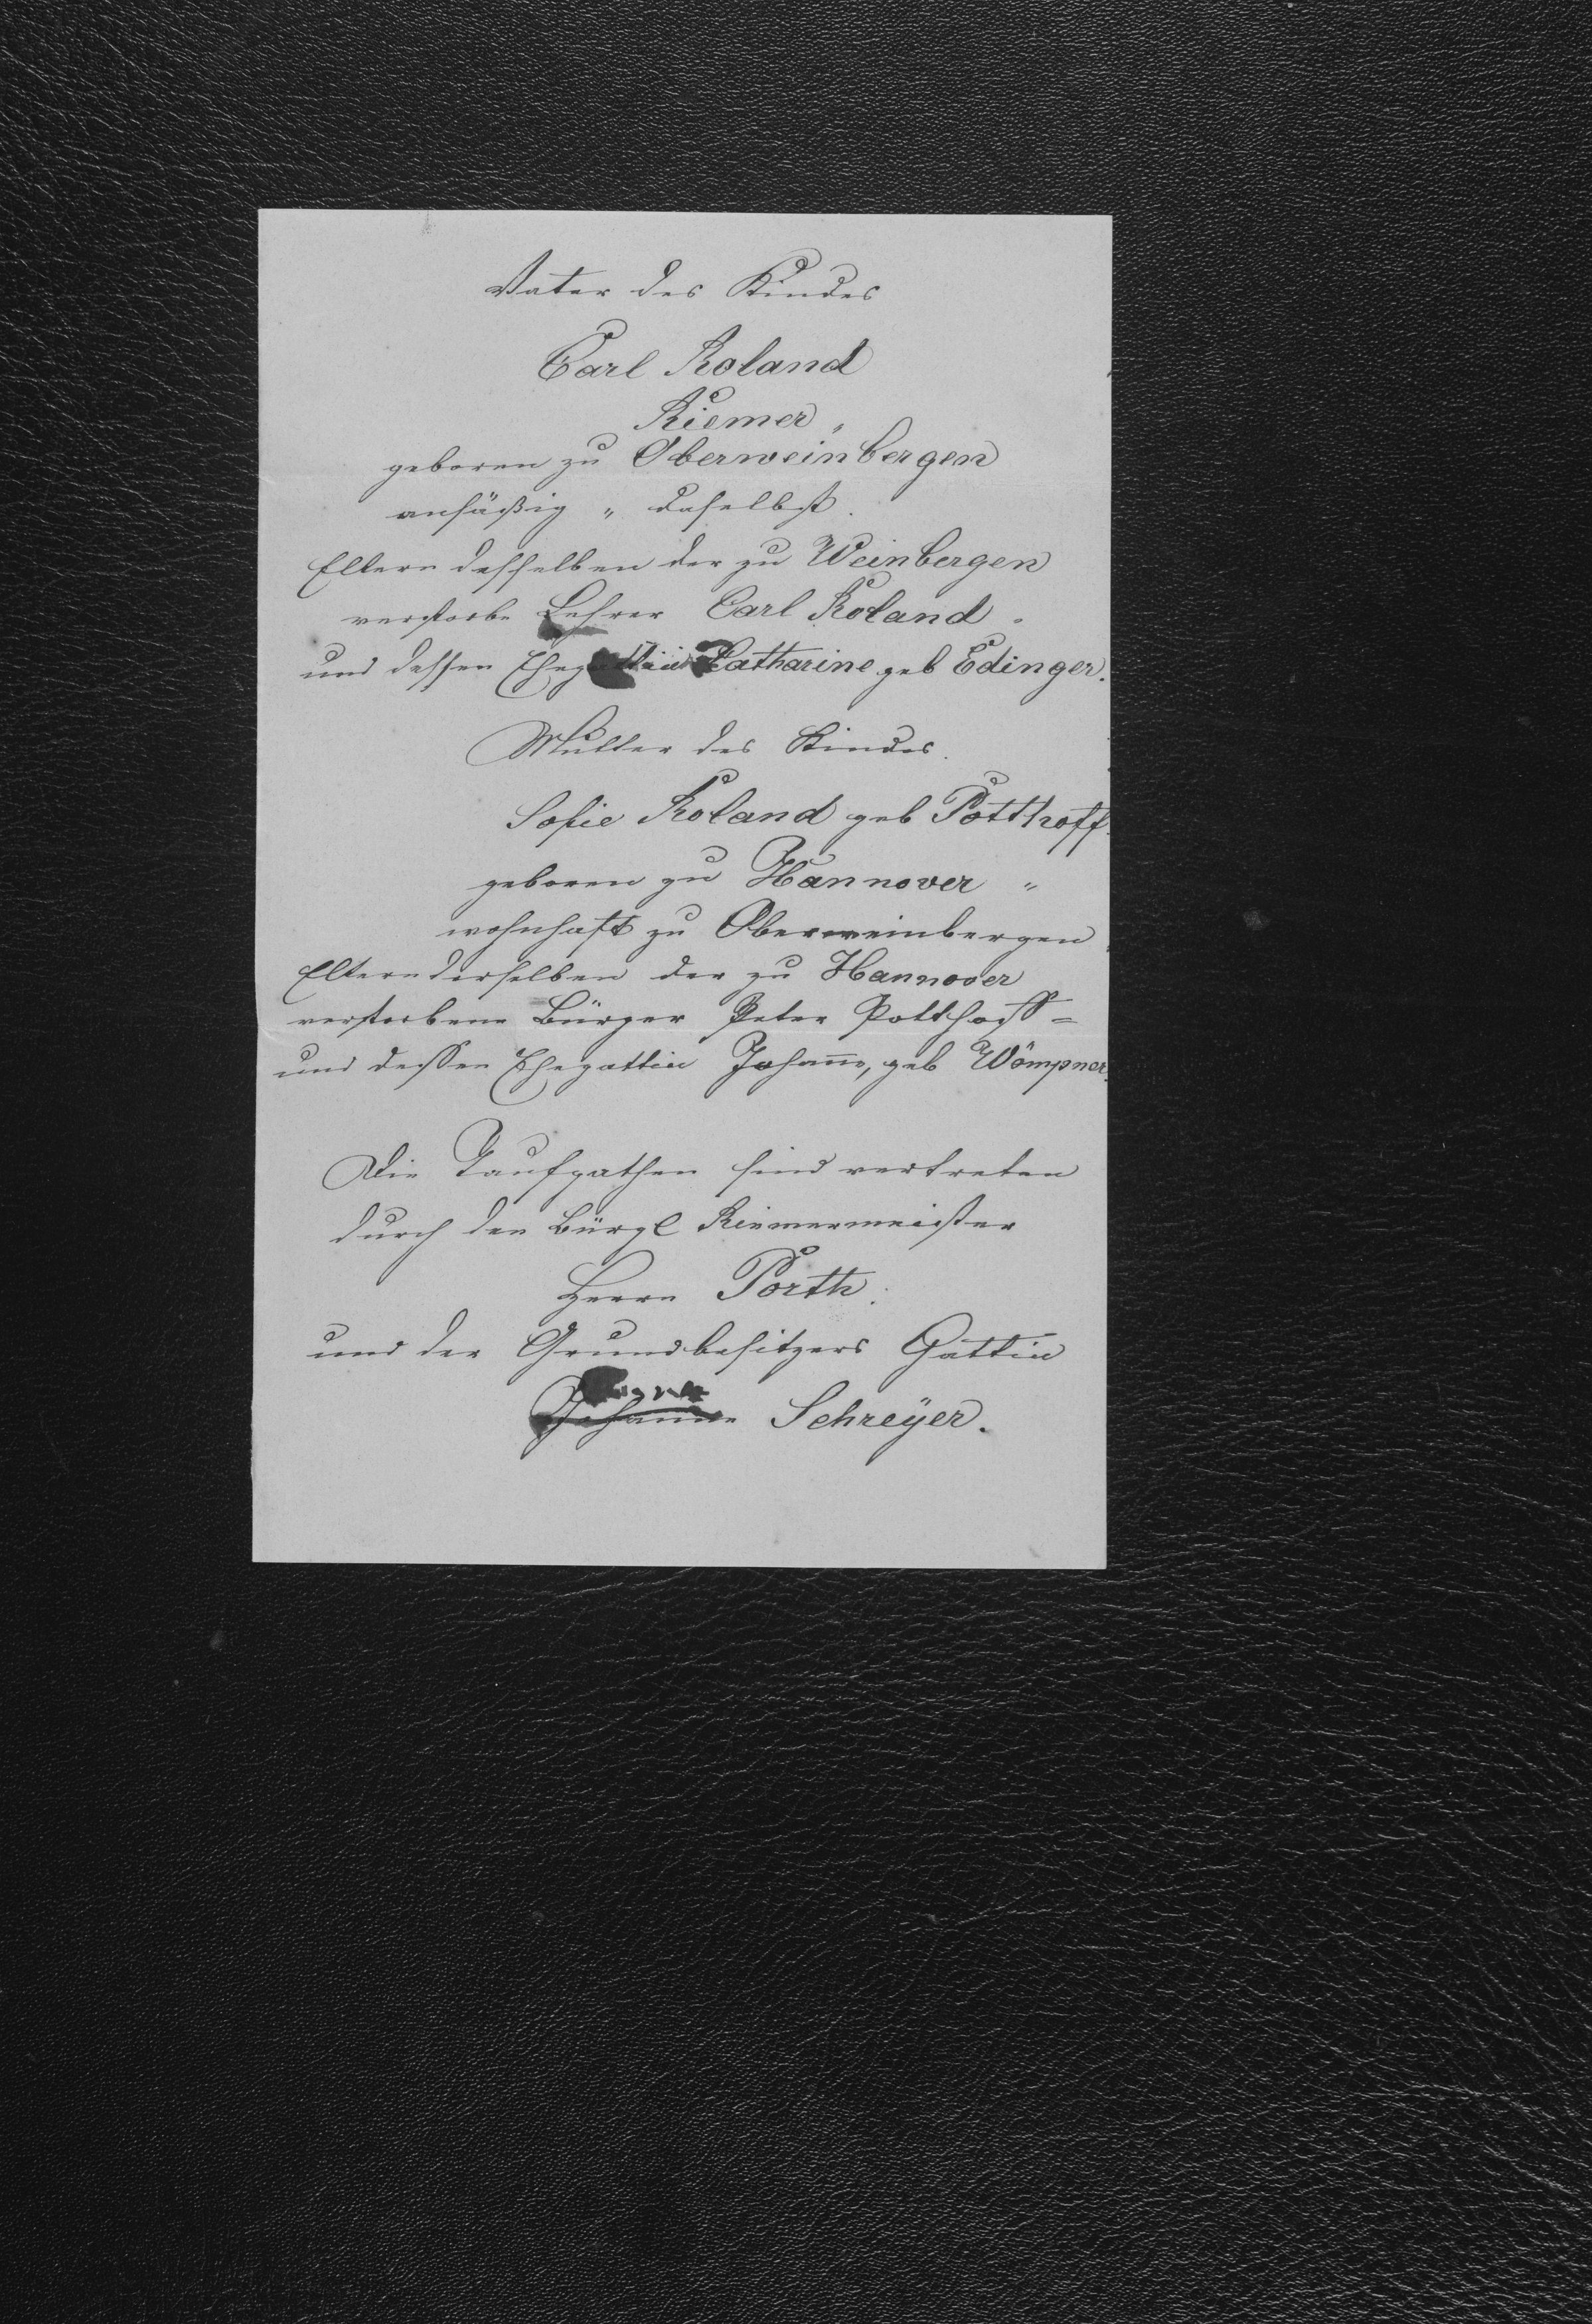 Vater des Kindes
Carl Roland
Riemer „
geboren zu Oberweinbergen
ansäßig „ daselbst.
Eltern desselben der zu Weinbergen
verstorbe Lehrer Carl Roland.
und dessen Ehegattin Catharine geb Edinger.
Mutter des Kindes.
Sofie Roland geb Potthoff.
geboren zu Hannover „
wohnhaft zu Oberweinbergen
Eltern derselben der zu Hannover
verstorbene Bürger Peter Potthoff =
und dessen Ehegattin Johanne, geb Wömpner.
Die Taufpathen sind vertreten
durch den Bürgl Riemermeister
Herrn Porth.
und der Grundbesitzers Gattin
Johanne Schreÿer.